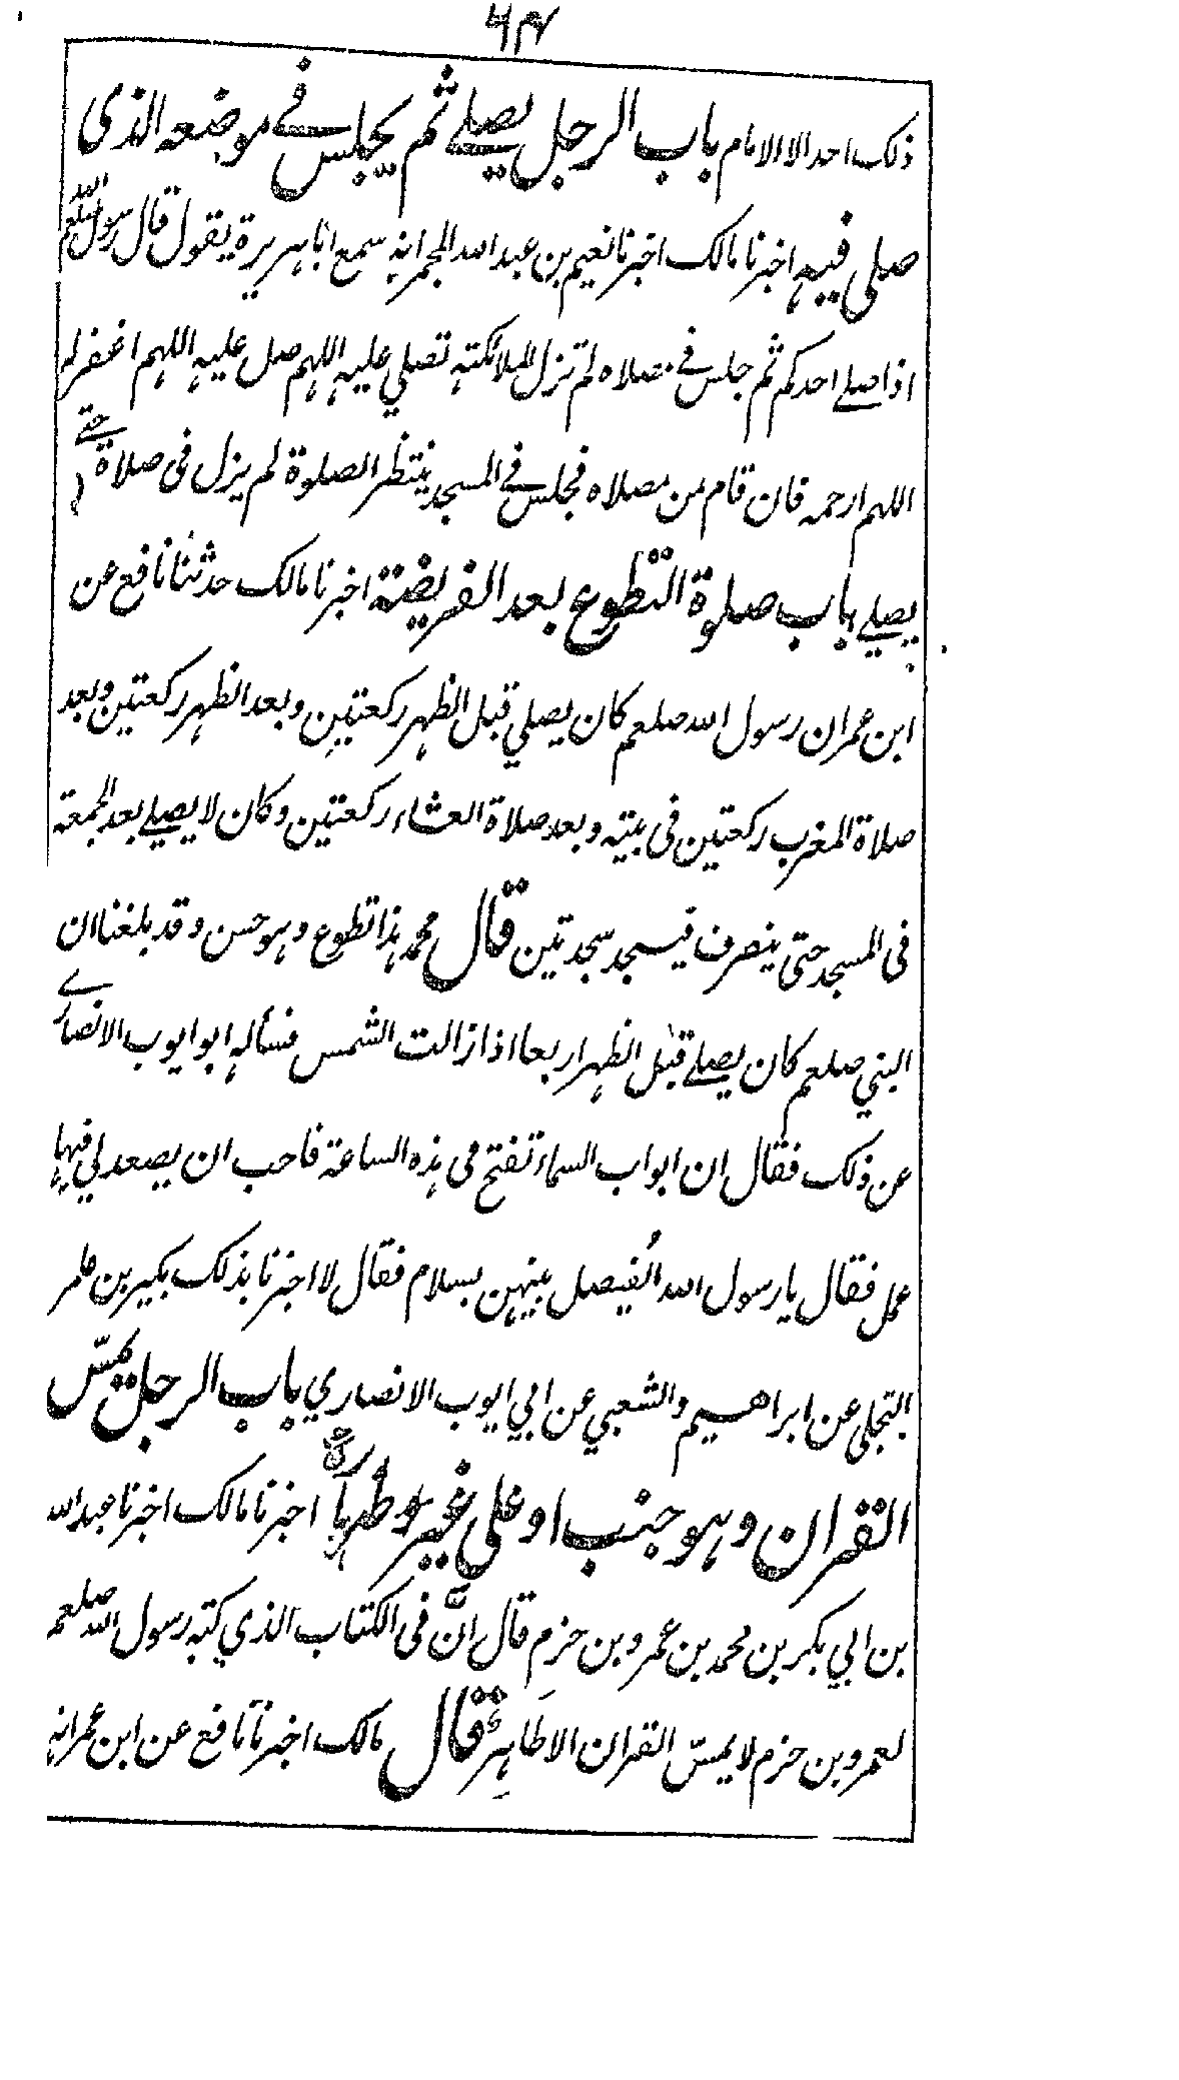 ۶۴
ذلك احد الا الامام باب الرجل يصلے ثم يجلس فے موضعه الذى
صلى فيه اخبرنا مالك اخبرنا نعيم بن عبد الله المجمر انه سمع ابا هريرة يقول قال رسول الله صلعم
اذا صلے احدكم ثم جلس فے مصلاه لم تزل الملائكته تصلي عليه اللهم صل عليه اللهم اغفر له
اللهم ارحمه فان قام من مصلاه فجلس فے المسجد ينتظر الصلوة لم يزل فى صلاة حتے
يصلے باب صلوة التطوع بعد الفريضة اخبرنا مالك حدثنا نافع عن
ابن عمر ان رسول الله صلعم كان يصلي قبل الظهر ركعتين وبعد الظهر ركعتين وبعد
صلاة المغرب ركعتين فى بيته وبعد صلاة العشاء ركعتين وكان لا يصلے بعد الجمعة
فى المسجد حتى ينصرف فيسجد سجدتين قال محمد هذا تطوع وهو حسن وقد بلغنا ان
النبي صلعم كان يصلے قبل الظهر اربعا اذا زالت الشمس فسأله ابو ايوب الانصارے
عن ذلك فقال ان ابواب السماء تفتح فى هذه الساعة فاحب ان يصعد لي فيها
عمل فقال يا رسول الله ايُفصل بينهن بسلام فقال لا اخبرنا بذلك بكير بن عامر
البجلى عن ابراهيم والشعبي عن ابي ايوب الانصاري باب الرجل يمسّ
القران وهو جنب او على غير طهارة اخبرنا مالك اخبرنا عبد الله
بن ابي بكر بن محمد بن عمرو بن حزم قال انّ فى الكتاب الذي كتبه رسول الله صلعم
لعمرو بن حزم لا يمسّ القران الا طاهر قال مالك اخبرنا نافع عن ابن عمر انه